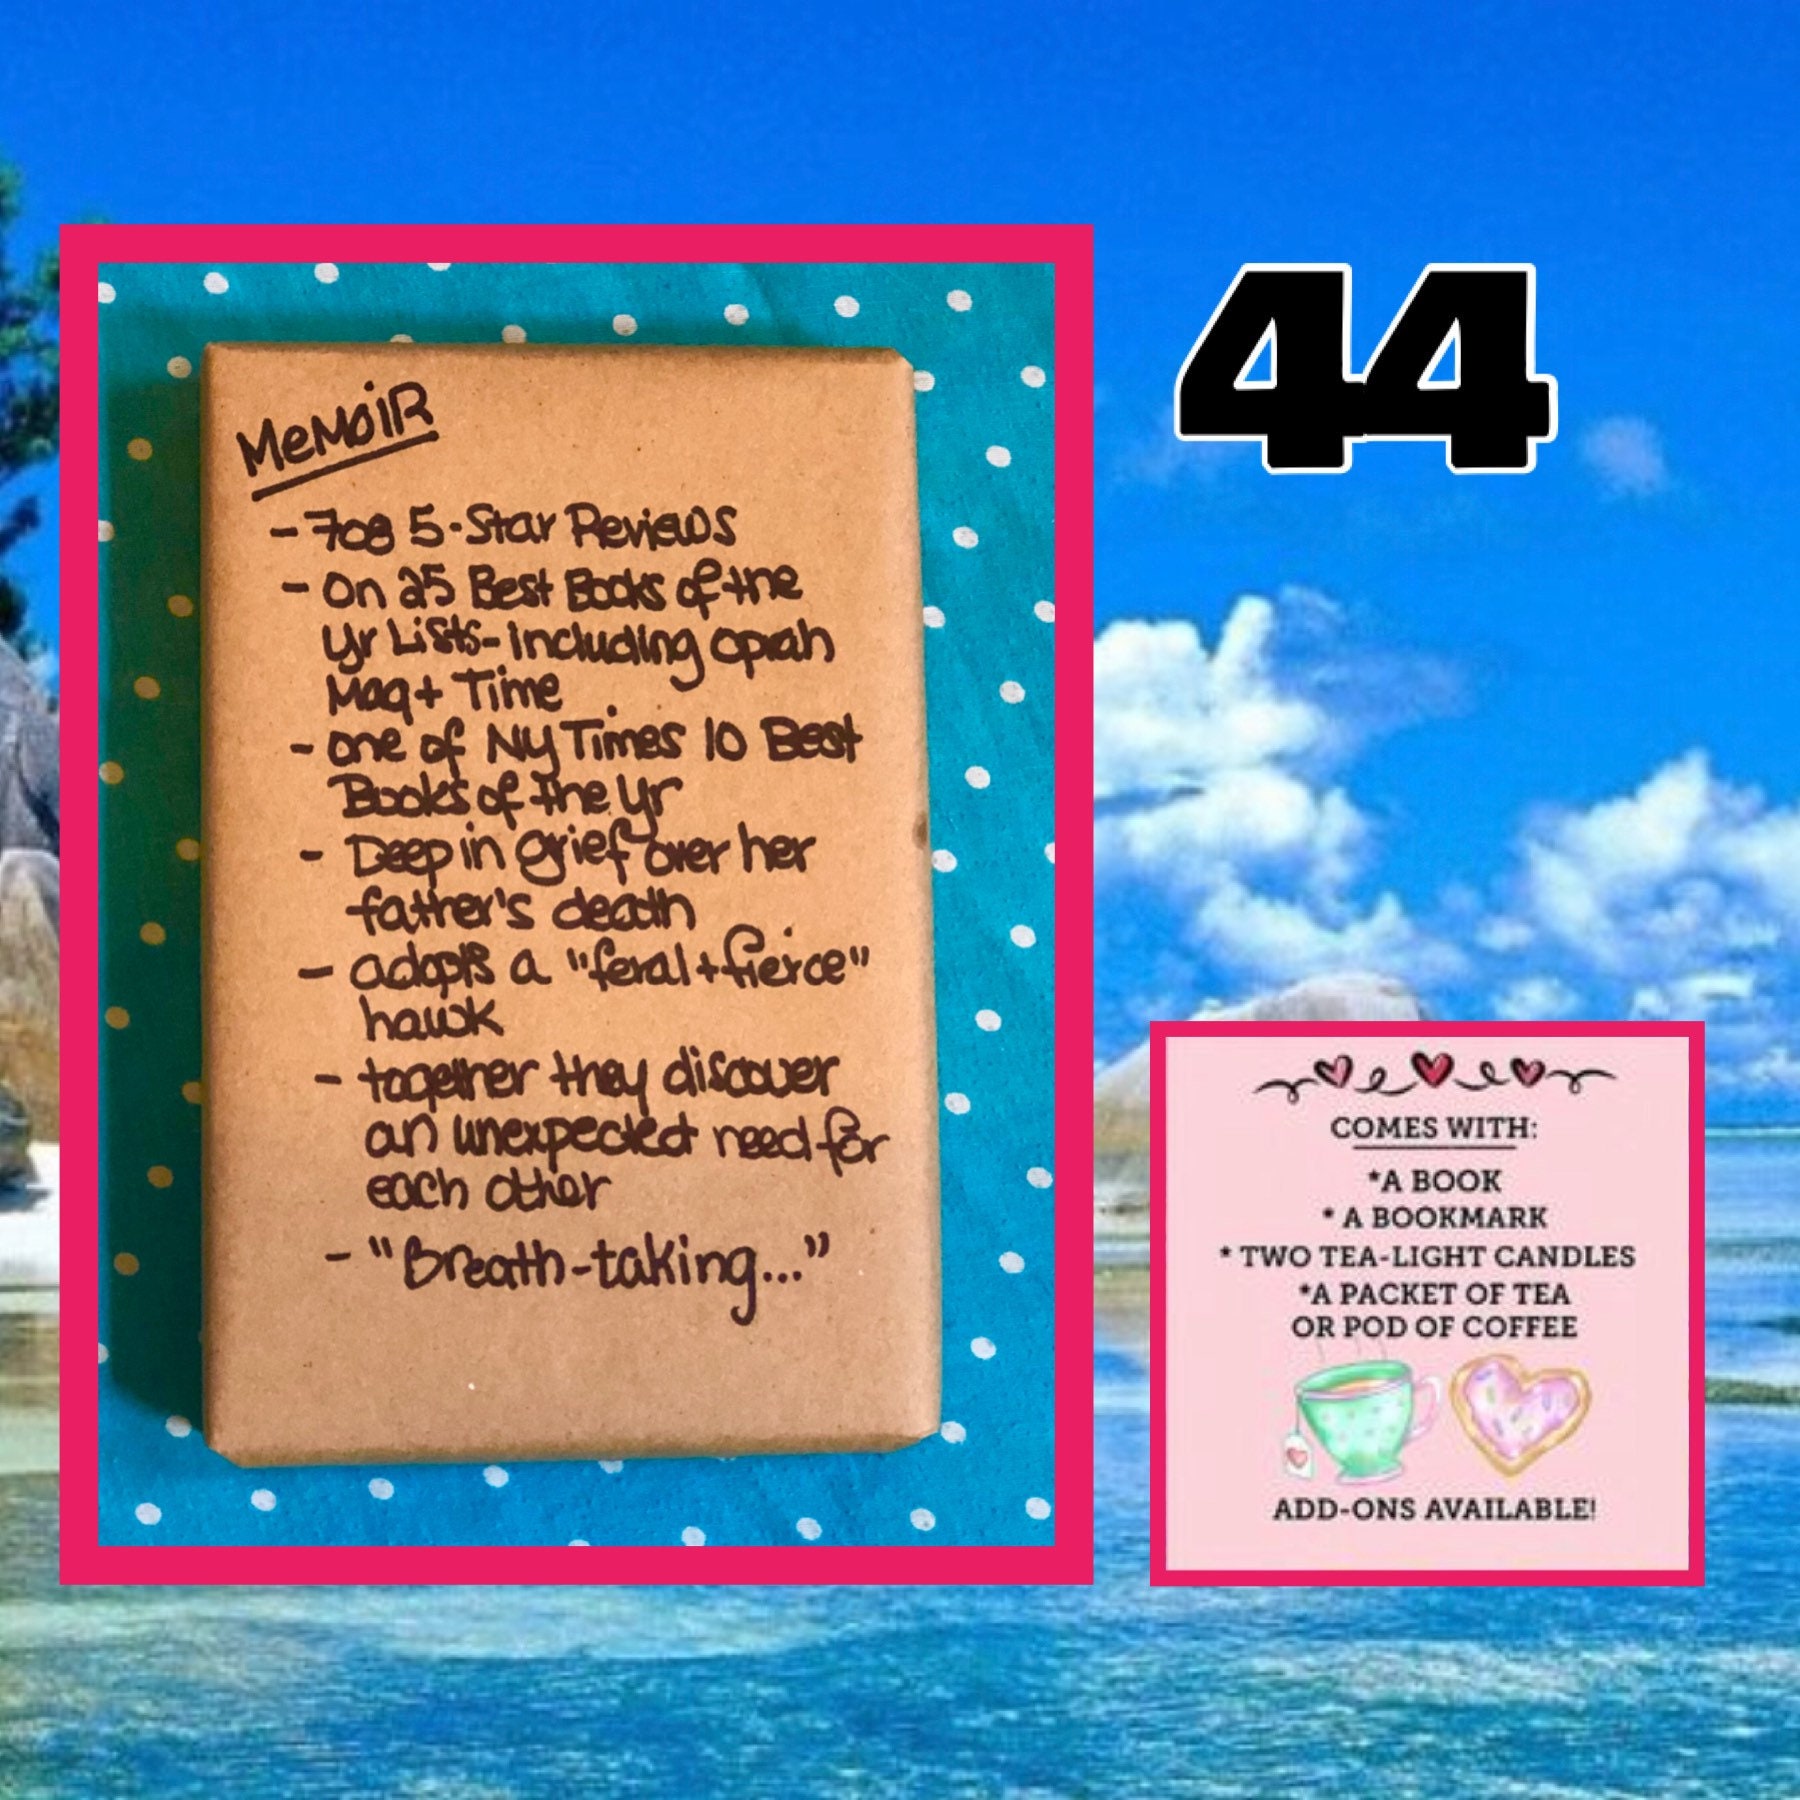 MeMoiR
- 708 5-Star Reviews
- On 25 Best Books of the
Yr Lists- Including Oprah
Mag + Time
- One of NY Times 10 Best
Books of the Yr
- Deep in grief over her
father's death
- adopts a "feral + fierce"
hawk
- together they discover
an unexpected need for
each other
- "Breath-taking..."
44
COMES WITH:
*A BOOK
* A BOOKMARK
* TWO TEA-LIGHT CANDLES
*A PACKET OF TEA
OR POD OF COFFEE
ADD-ONS AVAILABLE!